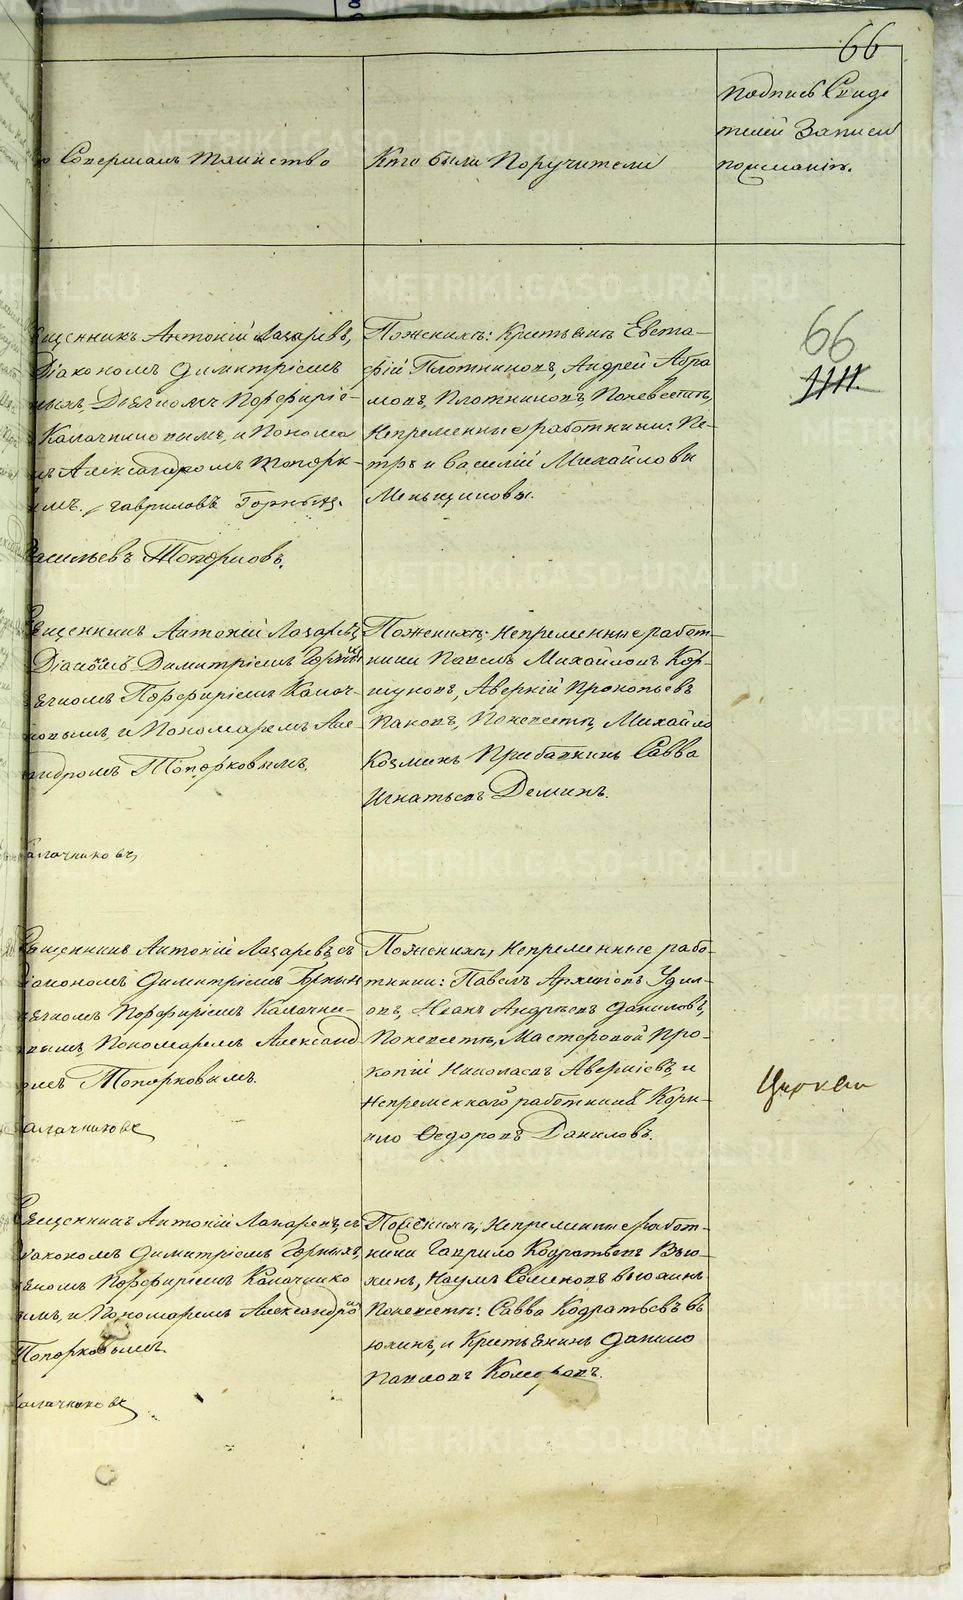 66
о Совершалъ таинство
Кто были Поручители
Подпись Свиде
телей Записи
по желанію.
66
щенникъ Антоній Лазаревъ,
Діакономъ Димитріемъ
ныхъ, Дьячкомъ Порфиріе-
Калачниковымъ, и Понома
Александромъ Топорк-
мъ. Гавриловъ Горныхъ.
Васильевъ Топорковъ.
По женихѣ: Крестьянъ Евста-
фій Плотниковъ, Андрей Абра
мовъ, Плотниковъ, По невѣстѣ,
Непременные работники: Пе-
тръ и Василій Михайловы
Меньщиковы.
щенникъ Антоній Лазаревъ,
Діакономъ Димитріемъ Горных
ячкомъ Порфиріемъ Калач-
ковымъ, и Пономаремъ Але-
ндромъ Топорковымъ.
Калачниковъ
По женихѣ; Непременные работ-
ники Павелъ Михайловъ Кор-
шуновъ, Аверкій Прокопьевъ
Пановъ, По невѣстѣ, Михайло
Козминъ Прибавкинъ Савва
Игнатьевъ Деминъ.
щенникъ Антоній Лазаревъ, съ
Діакономъ Димитріемъ Горных
ячкомъ Порфиріемъ Калачни-
вымъ, Пономаремъ Александ
омъ Топорковымъ.
Калачниковъ
По женихѣ, Непременные рабо-
тники: Павелъ Архиповъ Удил-
овъ, Иванъ Андрѣевъ Даниловъ,
По невѣстѣ, Мастеровой Про-
копій Николаевъ Аверкіевъ и
Непременного работника Кори-
ло Ѳедоровъ Даниловъ.
щенникъ Антоній Лазаревъ, съ
Діакономъ Димитріемъ Горныхъ,
ячкомъ Порфиріемъ Калачнико
ымъ, и Пономаремъ Александро
Топорковымъ
Калачниковъ
По женихѣ, Непременные работ-
ники Гаврило Кодратьевъ Вью-
хинъ, Наумъ Семеновъ Вьюхинъ
По невѣстѣ: Савва Кодратьевъ Вь
юхинъ, и Крестьянинъ Данило
Павловъ
METRIKI.GASO-URAL.RU